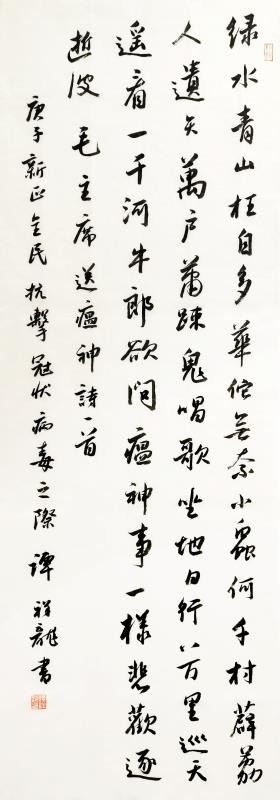 绿水青山枉自多華佗無奈小虫何千村薜荔
人遺矢萬户蕭疎鬼唱歌坐地日行八万里巡天
遥看一千河牛郎欲问瘟神事一樣悲歡逐
逝波 毛主席送瘟神詩一首
庚子新正全民抗擊冠状病毒之際 譚祥龍書